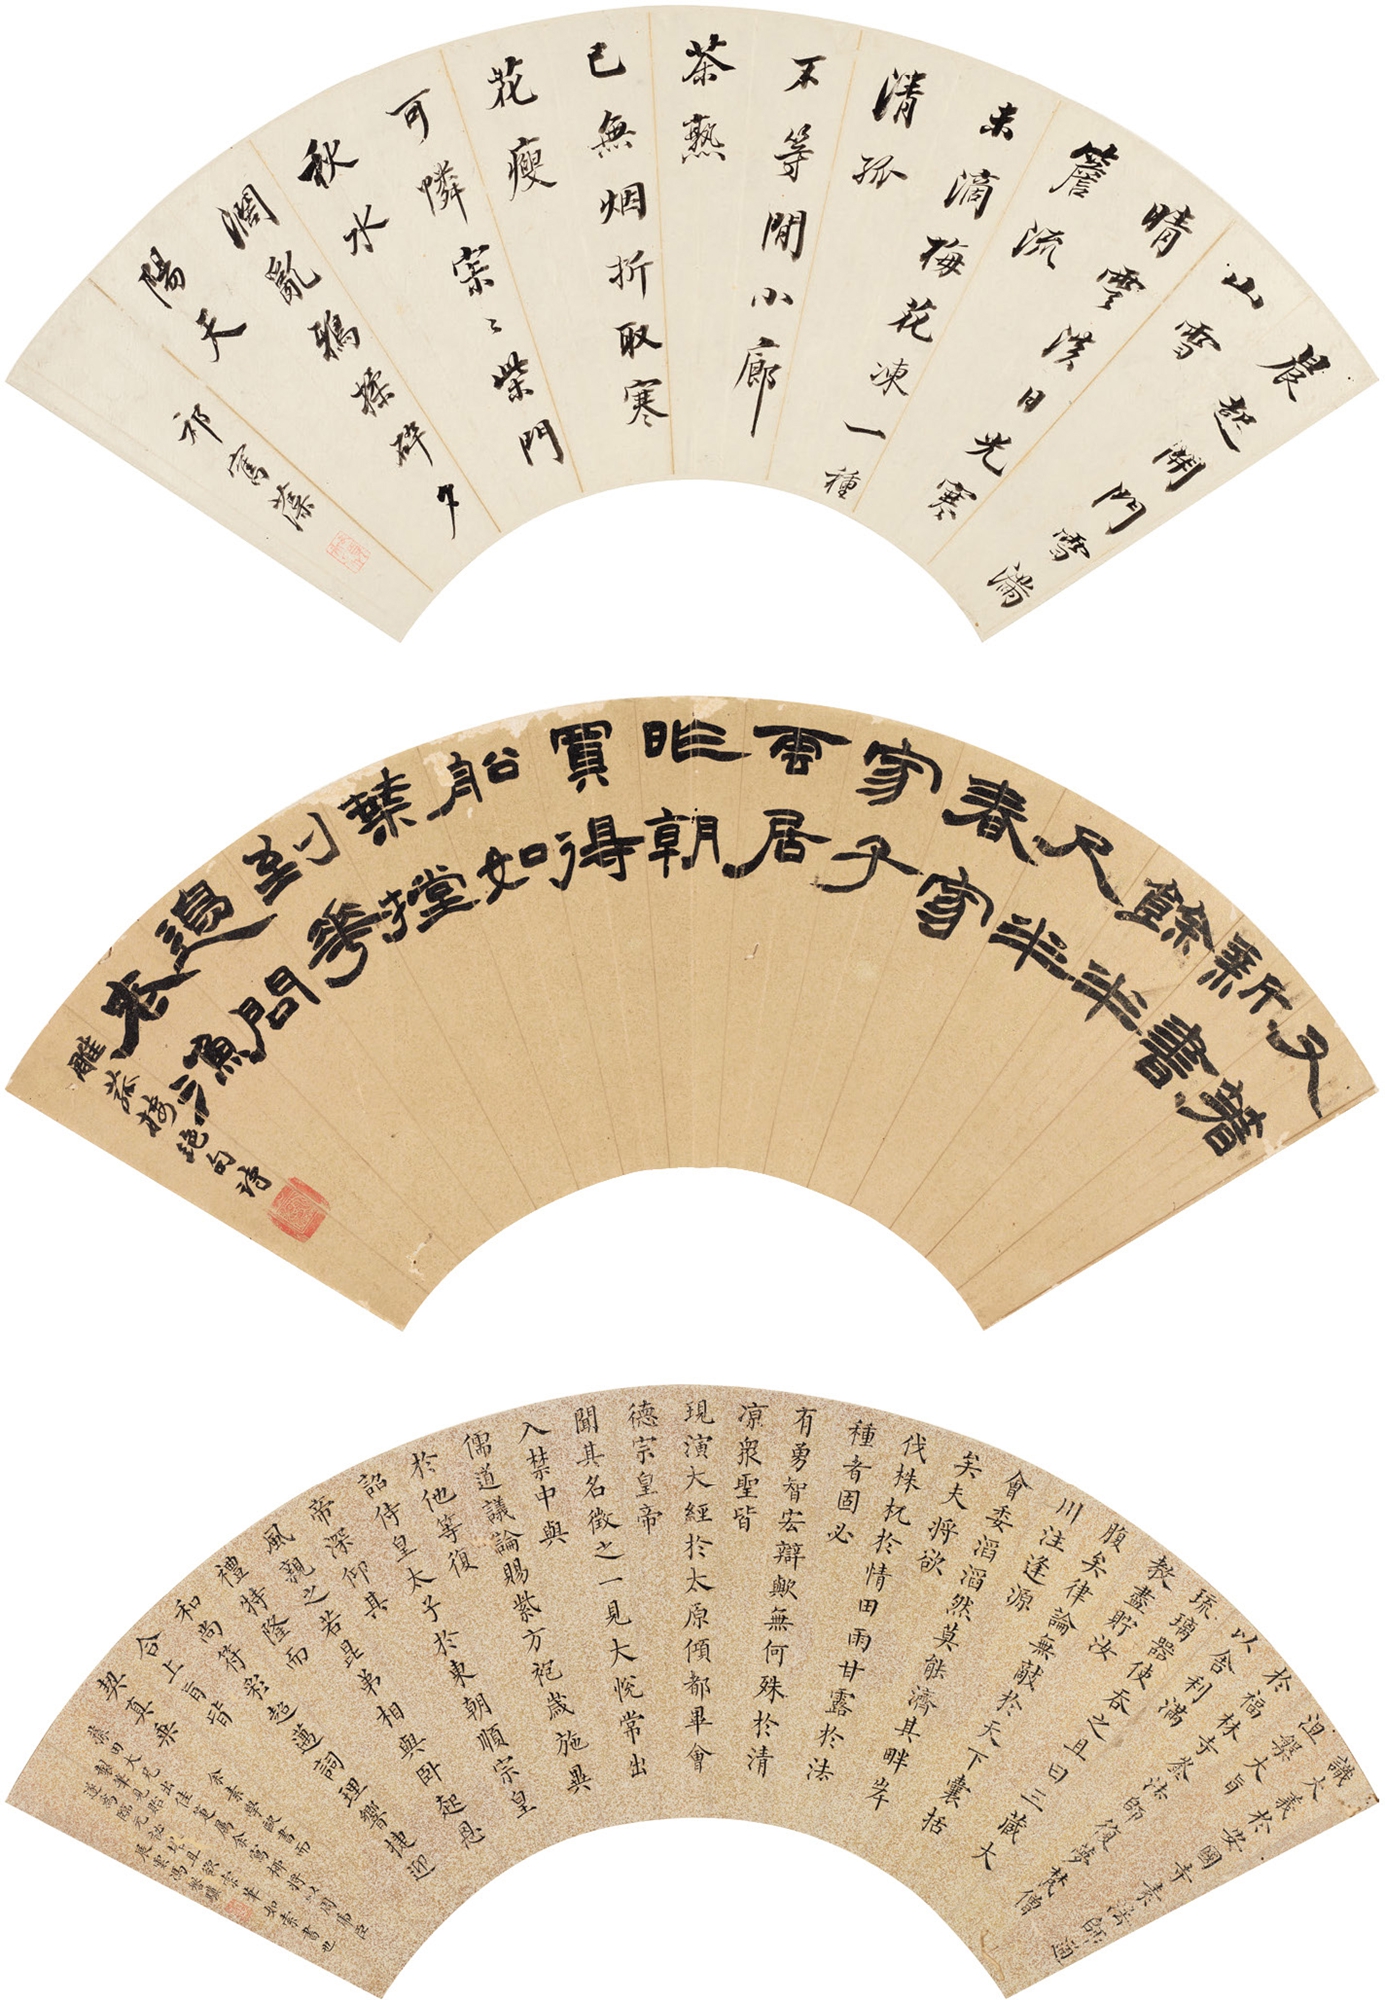 晨起開門雪滿
山雪
晴雲淡日光寒
簷流
未滴梅花凍一種
清孤
不等閒小廊
茶熟
已無烟折取寒
花瘦
可憐寂〻柴門
秋水
濶亂鴉揉碎夕
陽天
祁寯藻
久著
新書
餘半
尺半
春家
家子
雲居
昨朝
買得
船如
葉撐
到花
邊問
老漁
雕菰樓絕句詩
識大義於安國寺素法師通
涅槃大旨
於福林寺崟法師復夢梵僧
以舍利滿
琉璃器使吞之且曰三藏大
教盡貯汝
腹矣律論無敵於天下囊括
川注逢源
會委滔滔然莫能濟其畔岸
矣夫將欲
伐株杌於情田雨甘露於法
種者固必
有勇智宏辯歟無何殊於清
凉衆聖皆
現演大經於太原傾都畢會
德宗皇帝
聞其名徵之一見大悅常出
入禁中與
儒道議論賜紫方袍歲施異
於他等復
詔侍皇太子於東朝順宗皇
帝深仰其
風親之若昆弟相與卧起恩
禮特隆而
和尚符彩超邁詞理響捷迎
合上旨皆
契真乘